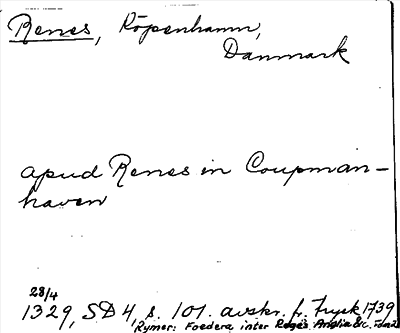 Renes, Köpenhamn,
Danmark
apud Renes in Coupman-
haven
28/4
1329, SD 4, s. 101. avskr. fr. Tryck 1739
Rymer: Foedera inter Reges Anglia &c.